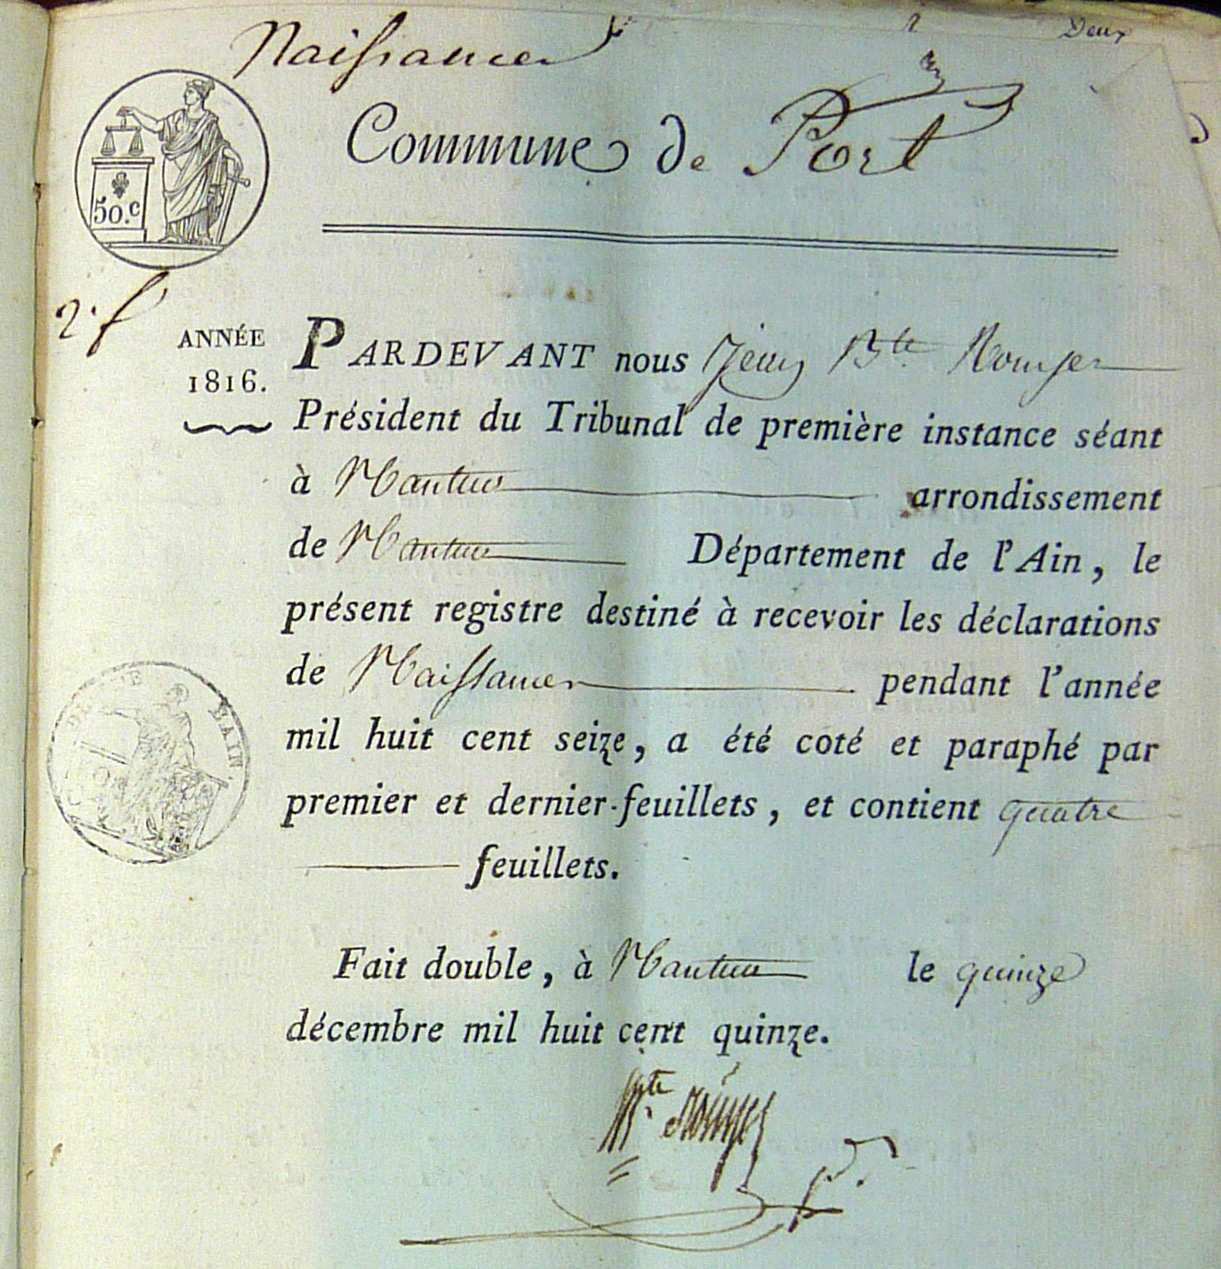 Naissances
Deux
Commune de Port
50.c
2.f
ANNÉE
1816.
PARDEVANT nous Jean Bte Rouyer
Président du Tribunal de première instance séant
à Nantua arrondissement
de Nantua Département de l'Ain, le
présent registre destiné à recevoir les déclarations
de Naissances pendant l'année
mil huit cent seize, a été coté et paraphé par
premier et dernier feuillets, et contient quatre
feuillets.
Fait double, à Nantua le quinze
décembre mil huit cent quinze.
Bte Rouyer